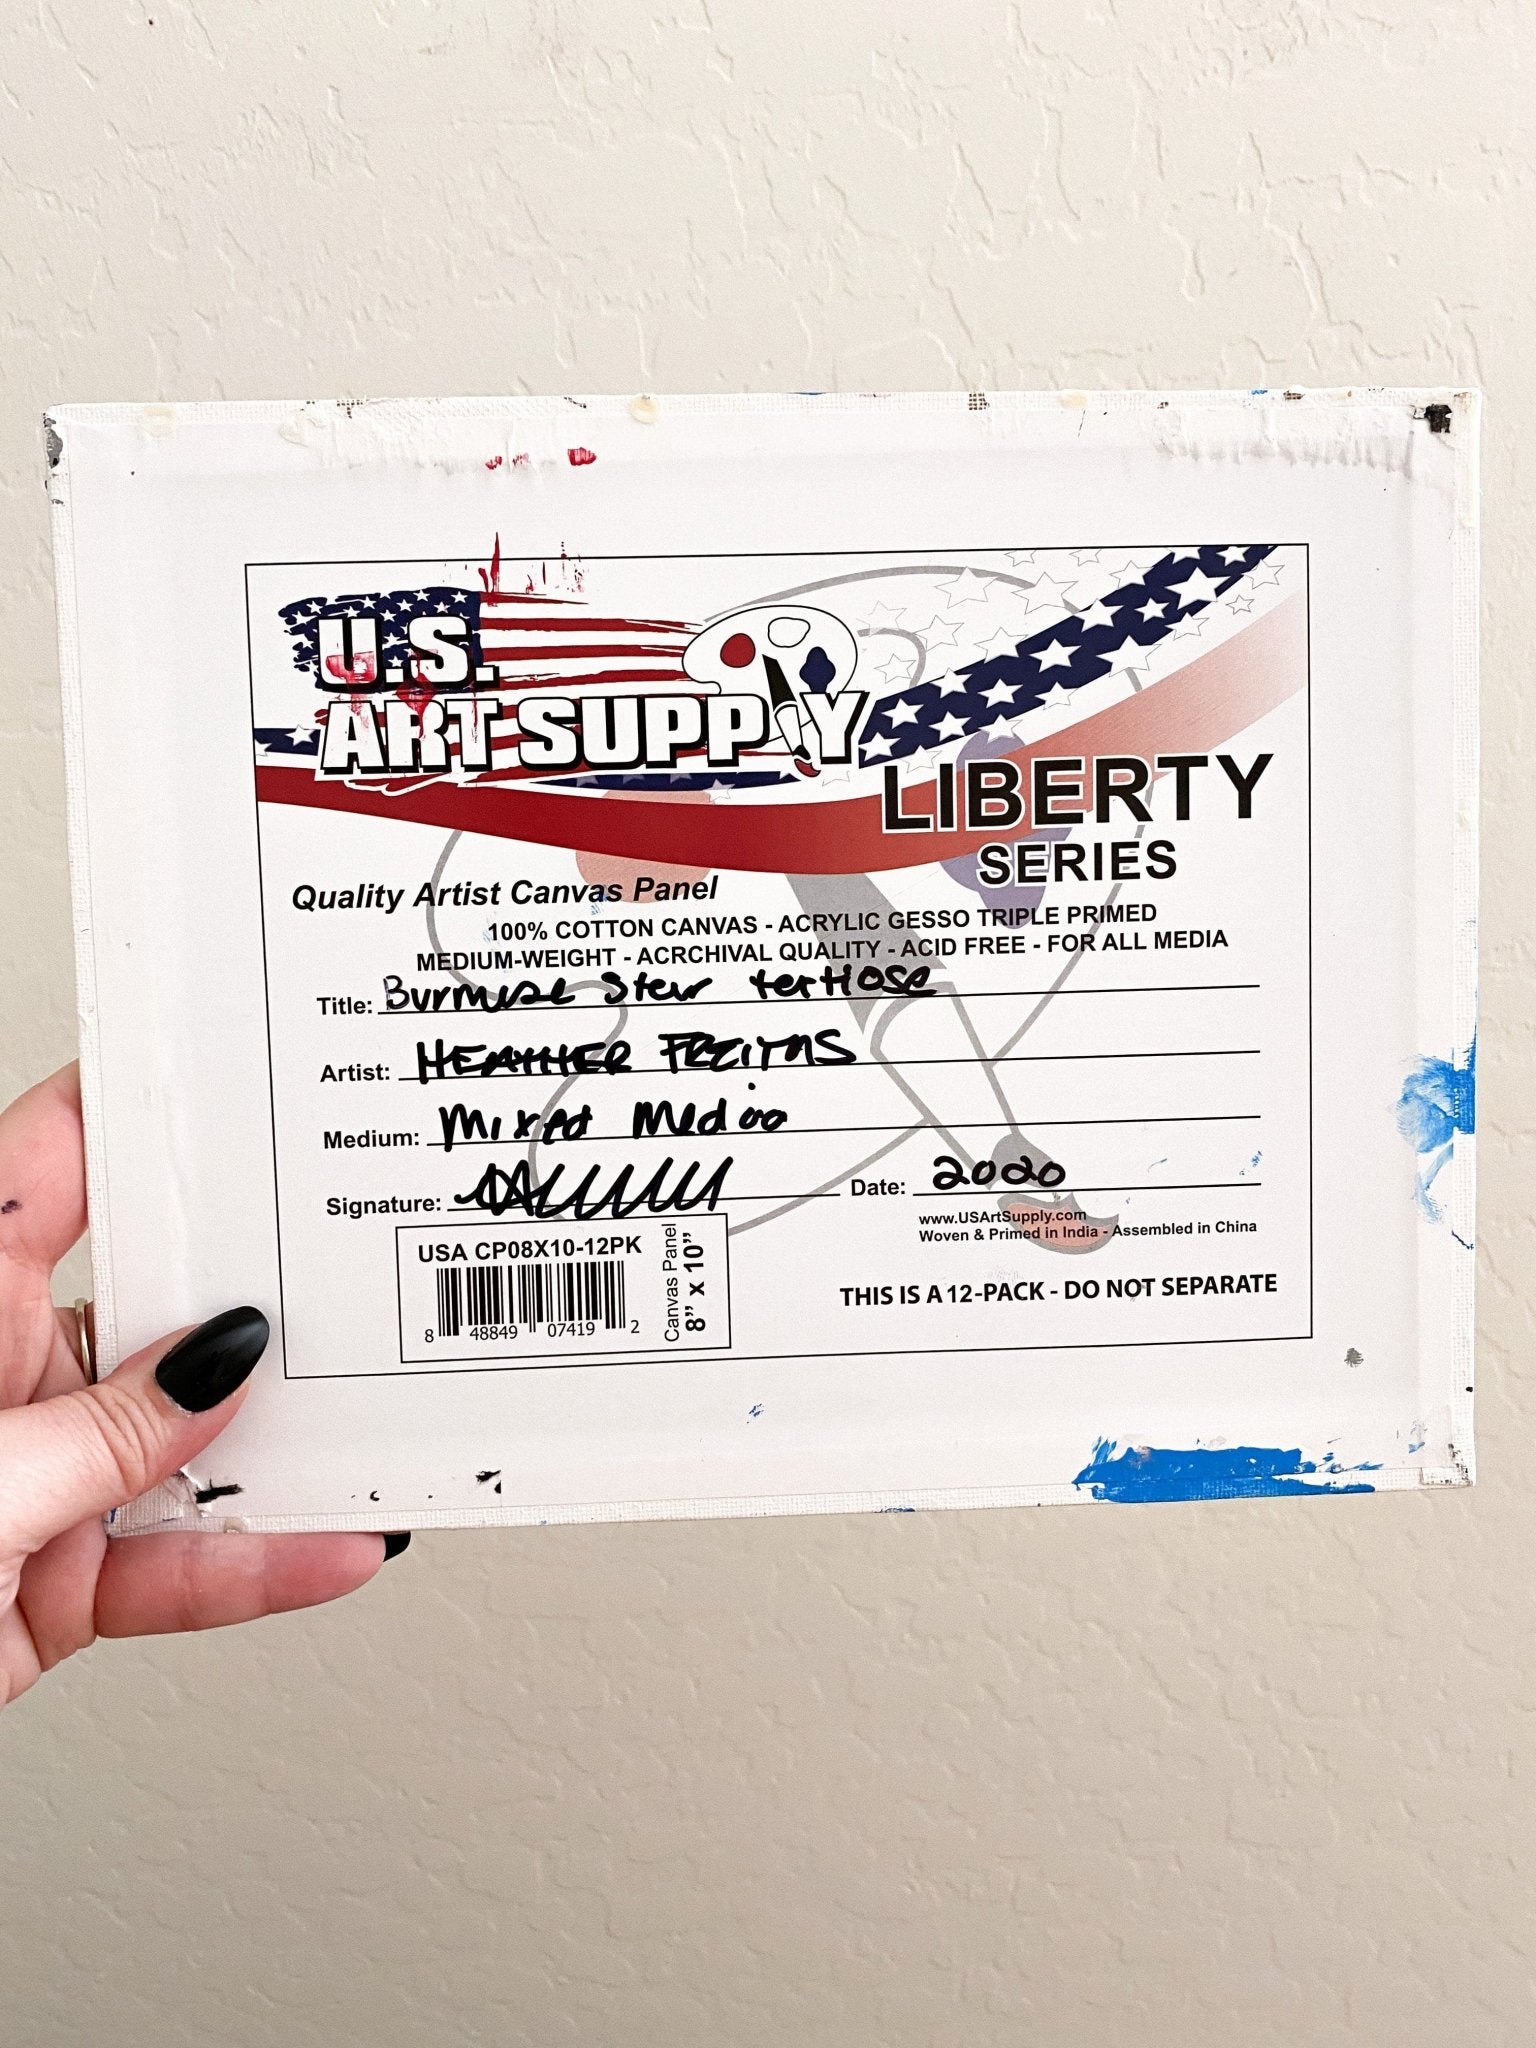 U.S.
ART SUPPLY
LIBERTY
SERIES
Quality Artist Canvas Panel
100% COTTON CANVAS - ACRYLIC GESSO TRIPLE PRIMED
MEDIUM-WEIGHT - ACRCHIVAL QUALITY - ACID FREE - FOR ALL MEDIA
Title: Burmese Star tortiose
Artist: HEATHER FREITAS
Medium: Mixed Media
Signature:
Date: 2020
www.USArtSupply.com
Woven & Primed in India - Assembled in China
USA CP08X10-12PK
8 48849 07419 2
Canvas Panel
8” x 10”
THIS IS A 12-PACK - DO NOT SEPARATE